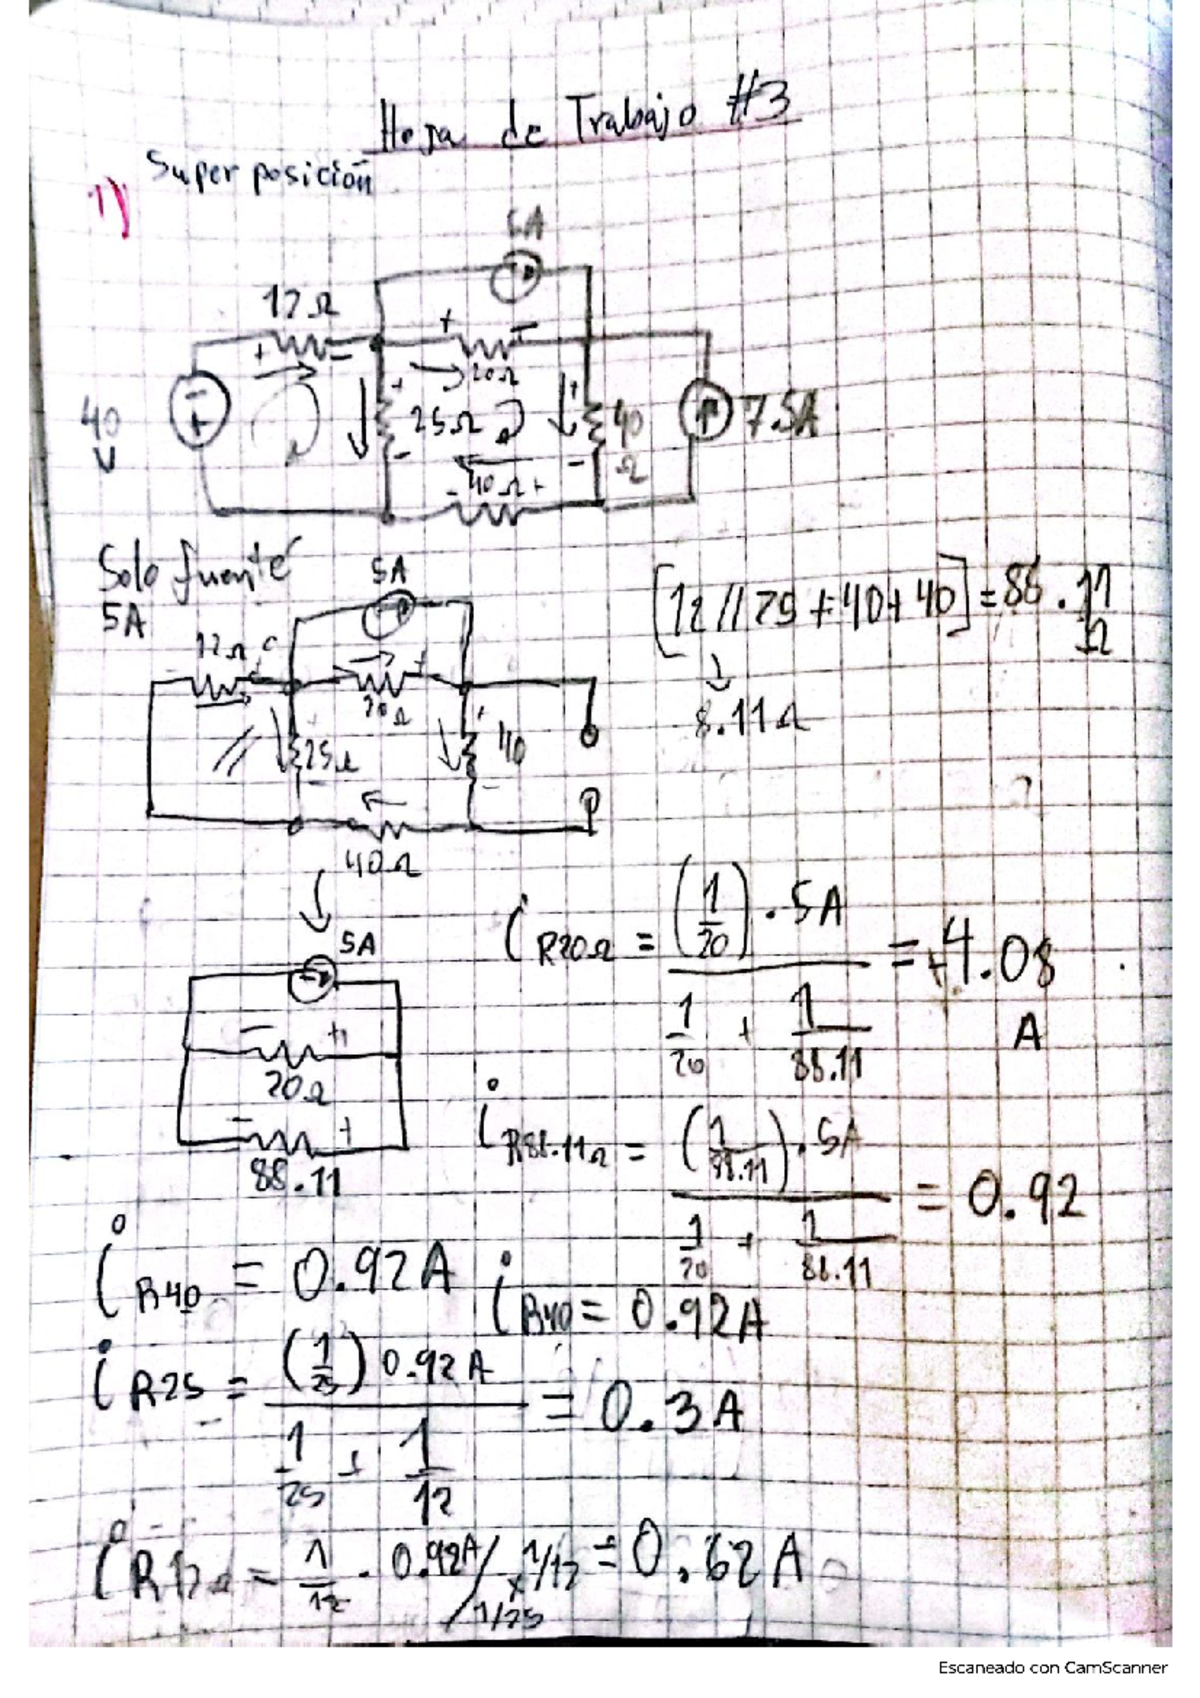 Hoja de Trabajo #3
Superposición
1)
5A
12Ω
+ - + -
20Ω
40
V
- +
25Ω
40
Ω
7.5A
- 40Ω +
Solo fuente
5A
5A
[12//25+40+40] = 88.11
Ω
8.11Ω
12Ω
20Ω
25Ω
40
40Ω
5A
- +
20Ω
- +
88.11
iR20Ω = (1/20) · 5A / 1/20 + 1/88.11 = +4.08
A
iR88.11Ω = (1/88.11) · 5A / 1/20 + 1/88.11 = 0.92
iR40 = 0.92A iR40 = 0.92A
iR25 = (1/25) 0.92A / 1/25 + 1/12 = 0.3A
iR12Ω = 1/12 · 0.92A / 1/12 + 1/25 = 0.62A
Escaneado con CamScanner